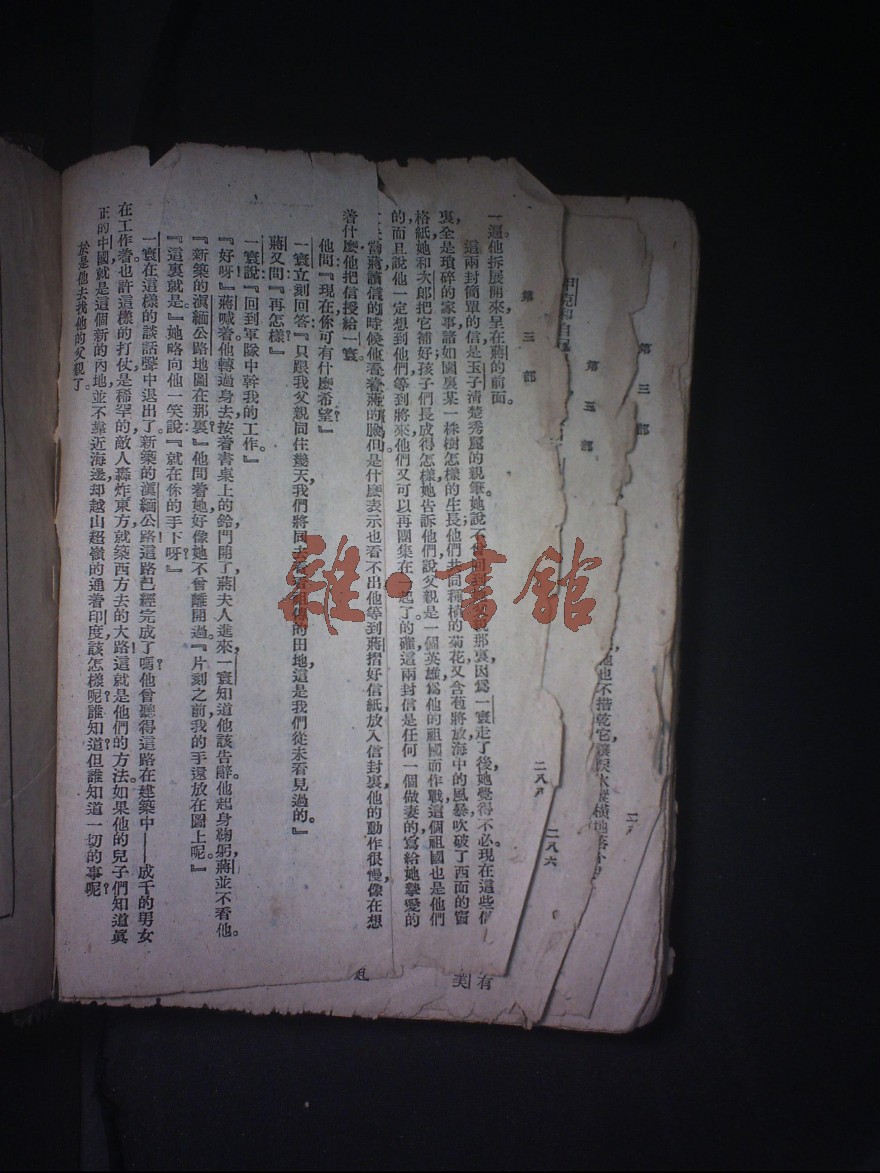 第三部
一遍。他拆展開來呈在蔣的前面。
這兩封簡單的信是玉子清楚秀麗的親筆。她說不曾回到 那裏因爲一寰走了後她覺得不必。現在這些信
裏全是瑣碎的家事諸如園裏某一株樹怎樣的生長他們共同種植的菊花又含苞將放海中的風暴吹破了西面的窗
格紙她和次郎把它補好孩子們長成得怎樣。她告訴他們說父親是一個英雄爲他的祖國而作戰這個祖國也是他們
的而且說他一定想到他們等到將來他們又可以再團集在一起了的確這兩封信是任何一個做妻的寫給她摯愛的
當蔣讀信的時候他看着蔣的臉但是什麼表示也看不出他等到蔣摺好信紙放入信封裏他的動作很慢像在想
着什麼他把信授給一寰。
他問：『現在你可有什麼希望？』
一寰立刻回答：『只跟我父親同住幾天我們將回去看看祖傳的田地這是我們從未看見過的。』
蔣又問：『再怎樣？』
一寰說：『回到軍隊中幹我的工作。』
『好呀！』蔣喊着他轉過身去按着書桌上的鈴門開了蔣夫人進來一寰知道他該告辭。他起身鞠躬蔣並不看他。
『新築的滇緬公路地圖在那裏？』他問着她好像她不曾離開過。『片刻之前我的手還放在圖上呢。』
『這裏就是。』她略向他一笑說：『就在你的手下呀。』
一寰在這樣的談話聲中退出了。新築的滇緬公路！這路已經完成了嗎？他曾聽得這路在建築中——成千的男女
在工作着也許這樣的打仗是稀罕的敵人轟炸東方就築西方去的大路這就是他們的方法。如果他的兒子們知道眞
正的中國就是這個新的內地並不靠近海邊却越山超嶺的通着印度該怎樣呢？誰知道但誰知道一切的事呢？
於是他去找他的父親了。
二八六
第三部
第三部
她也不揩乾它讓淚水縱橫地落
有
美
雜·書館